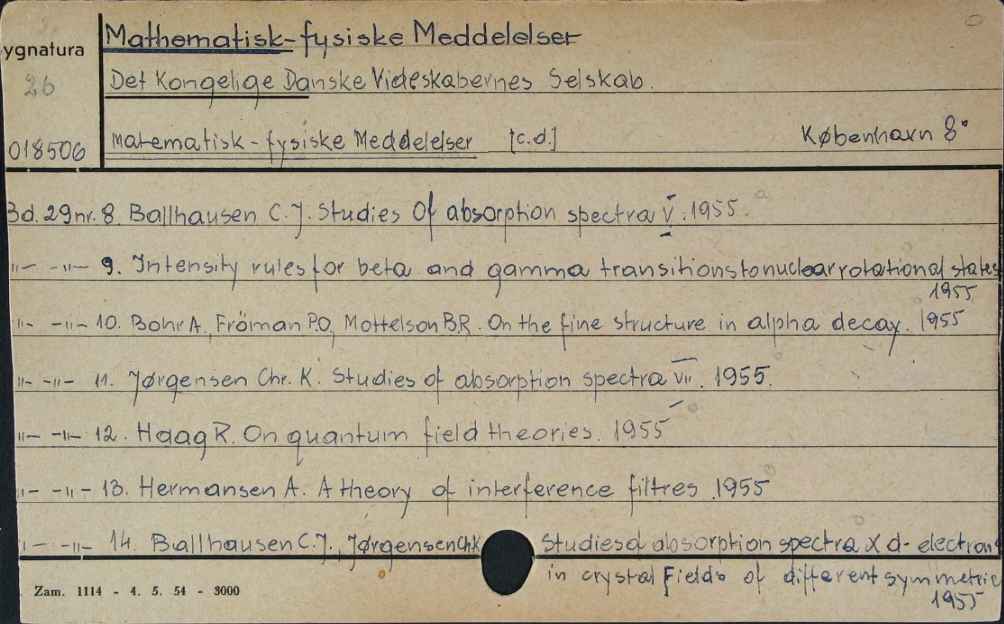 Mathematisk-fysiske Meddelelser
ygnatura
26
Det Kongelige Danske Videskabernes Selskab.
018506
Matematisk-fysiske Meddelelser [c.d.] København 8°
Bd. 29 nr. 8. Ballhausen C.J. Studies Of absorption spectra V. 1955.
"- -"- 9. Intensity rules for beta and gamma transitions to nuclear rotational states
1955
"- -"- 10. Bohr A., Fröman P.O, Mottelson B.R. On the fine structure in alpha decay. 1955
"- -"- 11. Jørgensen Chr. K. Studies of absorption spectra VII. 1955.
"- -"- 12. Haag R. On quantum field theories. 1955
"- -"- 13. Hermansen A. A theory of interference filtres 1955
"- -"- 14. Ballhausen C.J., Jørgensen Ch.K. Studies absorption spectra X d-electrons
in crystal Fields of different symmetrie
1955
Zam. 1114 - 4. 5. 54 - 3000